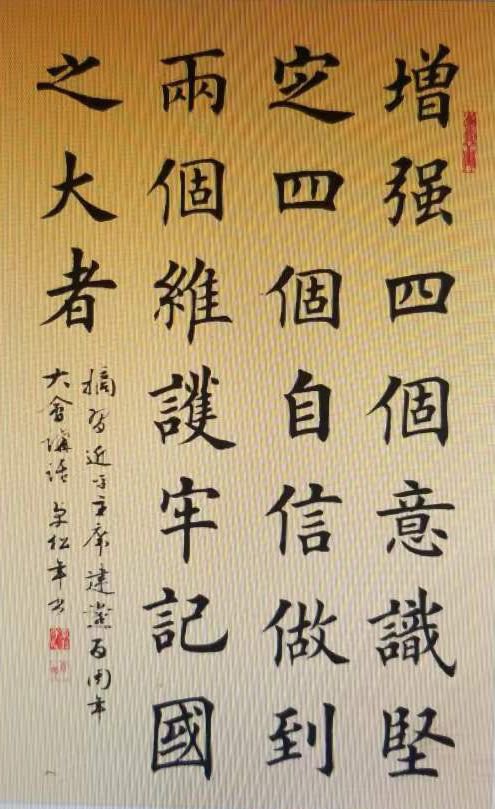 增强四個意識堅
定四個自信做到
兩個維護牢記國
之大者
摘習近平主席建黨百周年
大會講話 松年书